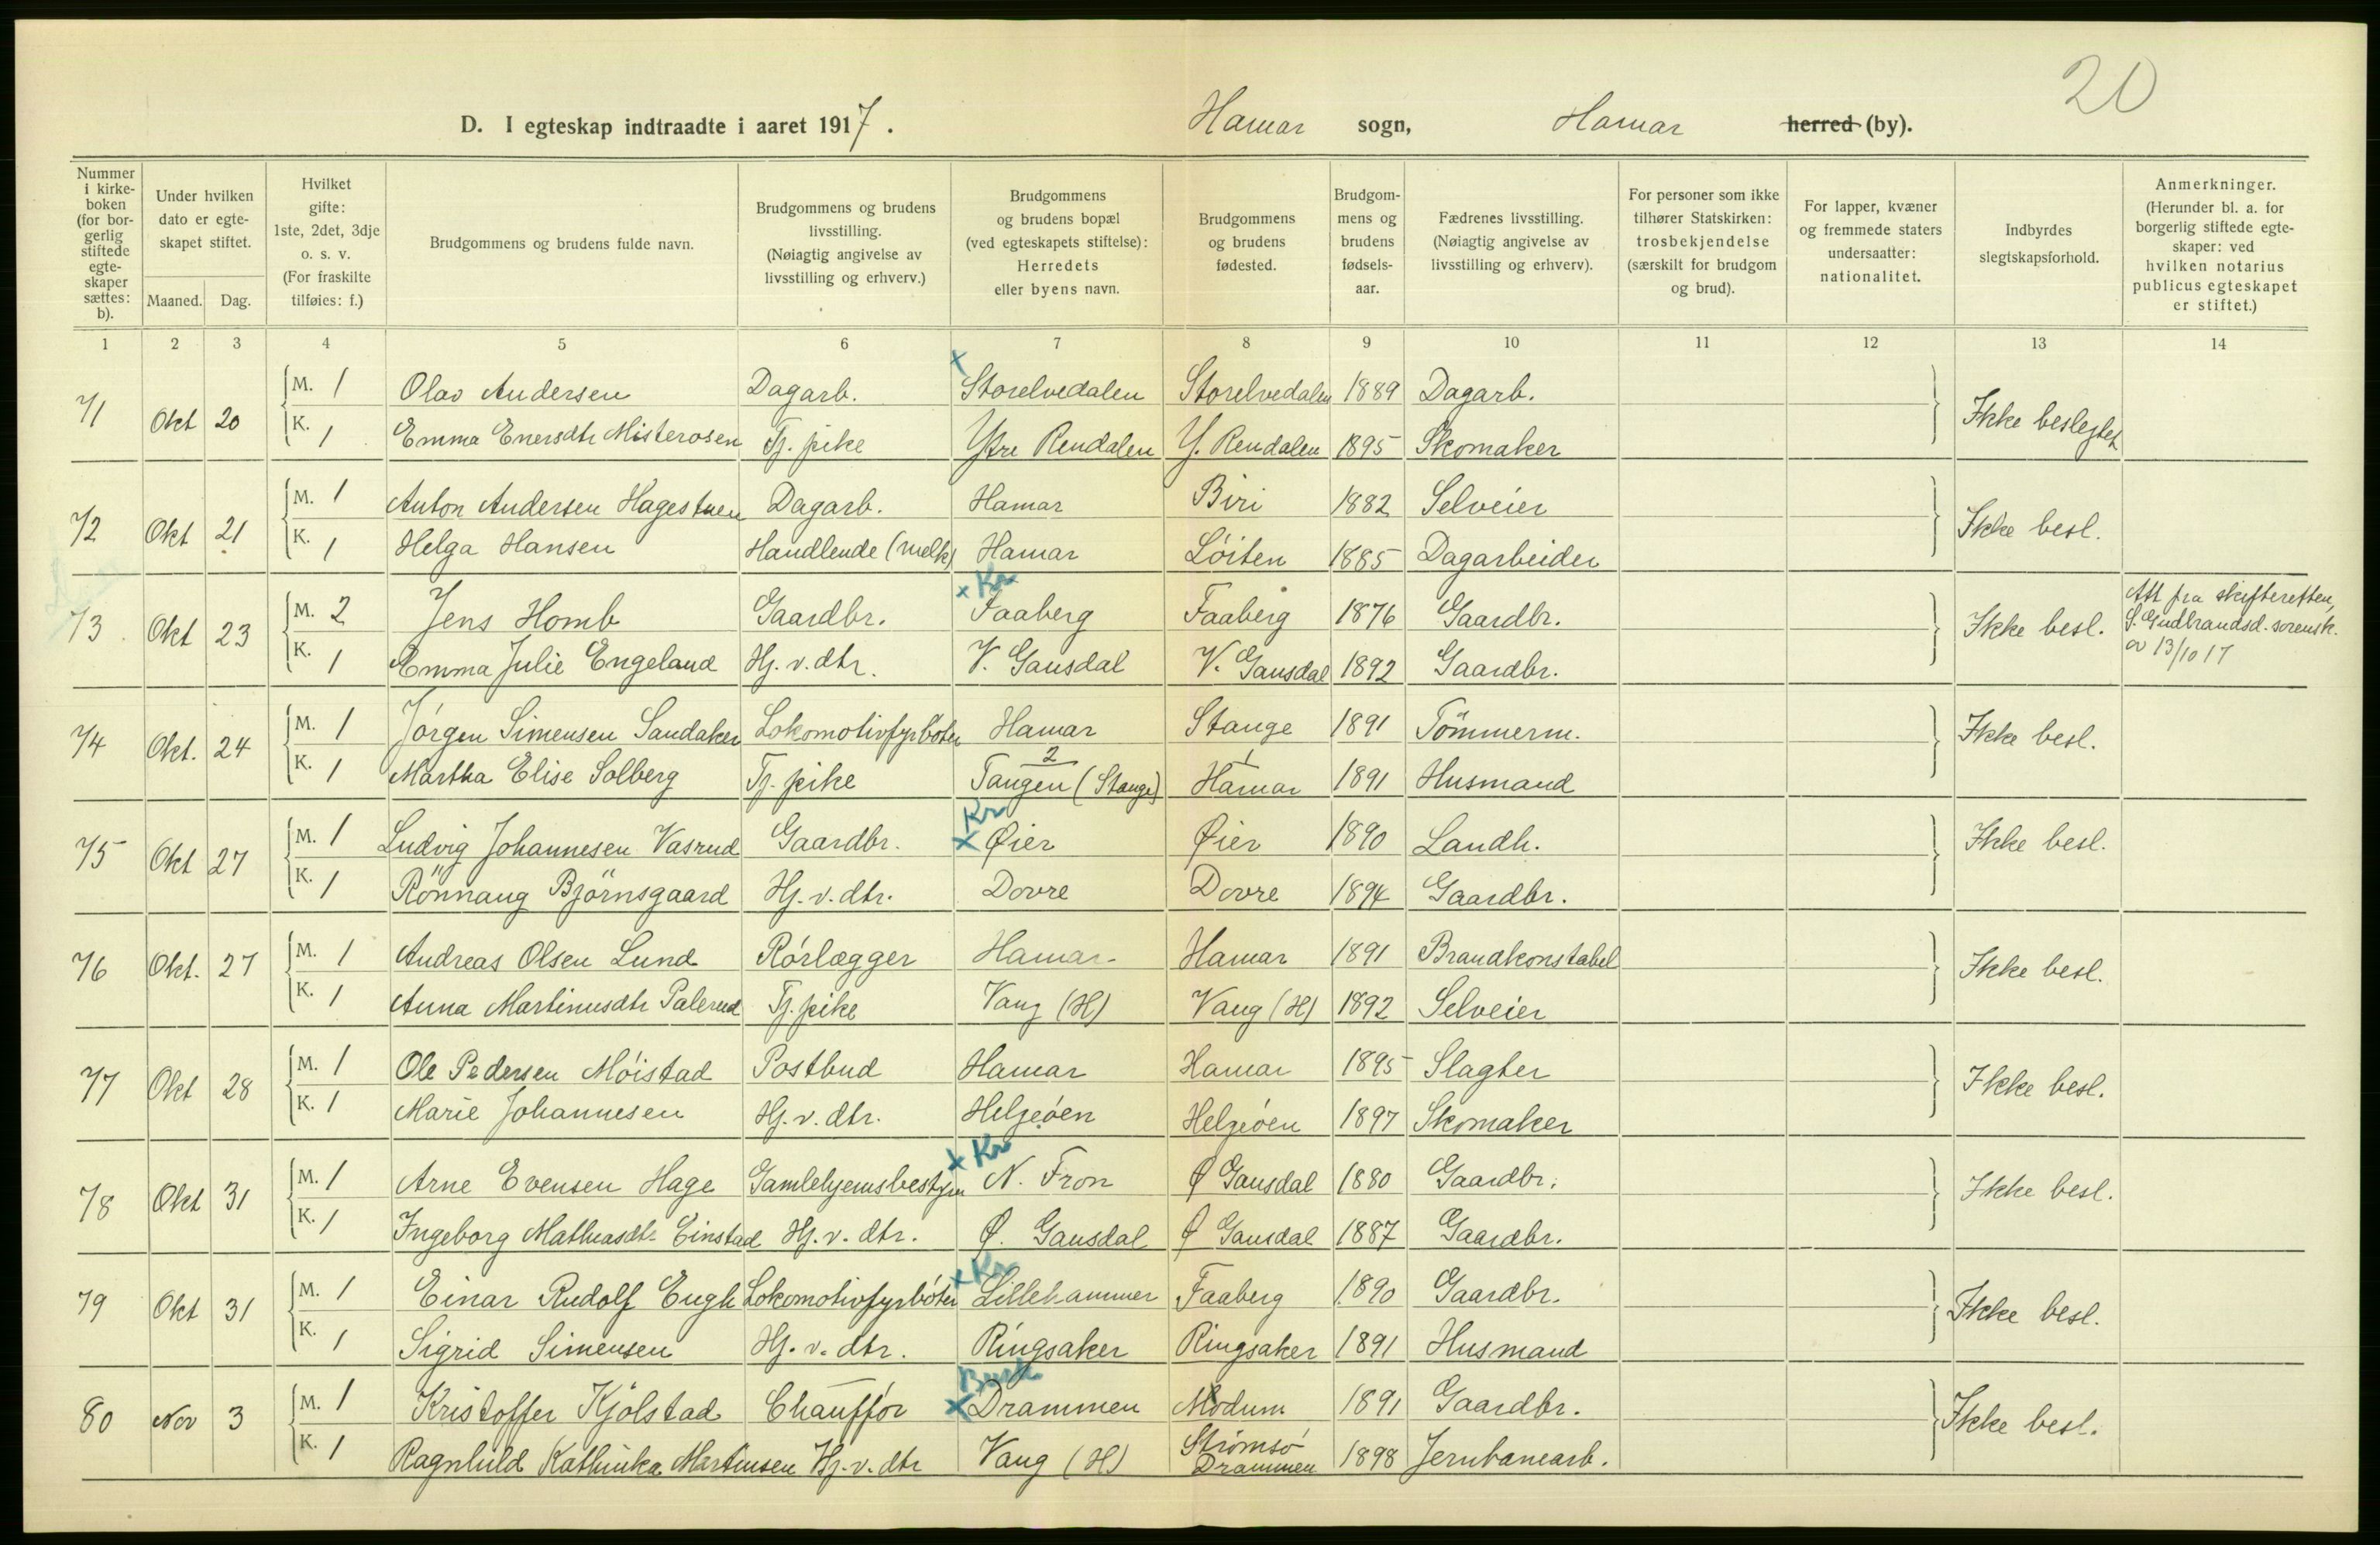 20
D. I egteskap indtraadte i aaret 1917. Hamar sogn, Hamar herred (by).
Nummer i kirke-boken (for bor-gerlig stiftede egte-skaper sættes: b).
Under hvilken dato er egte-skapet stiftet.
Maaned. Dag.
Hvilket gifte: 1ste, 2det, 3dje o. s. v. (For fraskilte tilføies: f.)
Brudgommens og brudens fulde navn.
Brudgommens og brudens livsstilling. (Nøiagtig angivelse av livsstilling og erhverv.)
Brudgommens og brudens bopæl (ved egteskapets stiftelse): Herredets eller byens navn.
Brudgommens og brudens fødested.
Brudgom-mens og brudens fødsels-aar.
Fædrenes livsstilling. (Nøiagtig angivelse av livsstilling og erhverv).
For personer som ikke tilhører Statskirken: trosbekjendelse (særskilt for brudgom og brud).
For lapper, kvæner og fremmede staters undersaatter: nationalitet.
Indbyrdes slegtskapsforhold.
Anmerkninger. (Herunder bl. a. for borgerlig stiftede egte-skaper: ved hvilken notarius publicus egteskapet er stiftet.)
1 2 3 4 5 6 7 8 9 10 11 12 13 14
71 Okt 20 M. 1 Olav Andersen Dagarb. x Storelvedalen Storelvedalen 1889 Dagarb. Ikke beslegtet
K. 1 Emma Enersdtr Misterosen Tj. pike Ytre Rendalen Y. Rendalen 1895 Skomaker
72 Okt 21 M. 1 Anton Andersen Hagestuen Dagarb. Hamar Biri 1882 Selveier Ikke besl.
K. 1 Helga Hansen Handlende (melk) Hamar Löiten 1885 Dagarbeider
73 Okt 23 M. 2 Jens Homb Gaardbr. x Kr Faaberg Faaberg 1876 Gaardbr. Ikke besl. Att fra skifteretten, S. Gudbrandsd. sorensk. av 13/10 17
K. 1 Emma Julie Engeland Hj. v. dtr. V. Gausdal V. Gausdal 1892 Gaardbr.
74 Okt. 24 M. 1 Jörgen Simensen Sandaker Lokomotivfyrböter Hamar Stange 1891 Tömmerm. Ikke besl.
K. 1 Martha Elise Solberg Tj. pike 2 Tangen (Stange) 1 Hamar 1891 Husmand
75 Okt 27 M. 1 Ludvig Johannesen Vasrud Gaardbr. x Kr Øier Øier 1890 Landh. Ikke besl.
K. 1 Rönnaug Björnsgaard Hj. v. dtr. Dovre Dovre 1894 Gaardbr.
76 Okt. 27 M. 1 Andreas Olsen Lund Rörlægger Hamar Hamar 1891 Brandkonstabel Ikke besl.
K. 1 Anna Martinusdtr Palerud Tj. pike Vang (H) Vang (H) 1892 Selveier
77 Okt 28 M. 1 Ole Pedersen Möistad Postbud Hamar Hamar 1895 Slagter Ikke besl.
K. 1 Marie Johannesen Hj. v. dtr. Helgeöen Helgeöen 1897 Skomaker
78 Okt 31 M. 1 Arne Evensen Hage Gamlehjemsbestyrer x Kr N. Fron Ø Gausdal 1880 Gaardbr. Ikke besl.
K. 1 Ingeborg Mathiasdtr Einstad Hj. v. dtr. Ø. Gausdal Ø Gausdal 1887 Gaardbr.
79 Okt 31 M. 1 Einar Rudolf Engh Lokomotivfyrböter x Kr Lillehammer Faaberg 1890 Gaardbr. Ikke besl.
K. 1 Sigrid Simensen Hj. v. dtr. Ringsaker Ringsaker 1891 Husmand
80 Nov 3 M. 1 Kristoffer Kjölstad Chaufför x Busk Drammen Modum 1891 Gaardbr. Ikke besl.
K. 1 Ragnhild Kathinka Martinsen Hj. v. dtr Vang (H) Strömsö Drammen 1898 Jernbanearb.